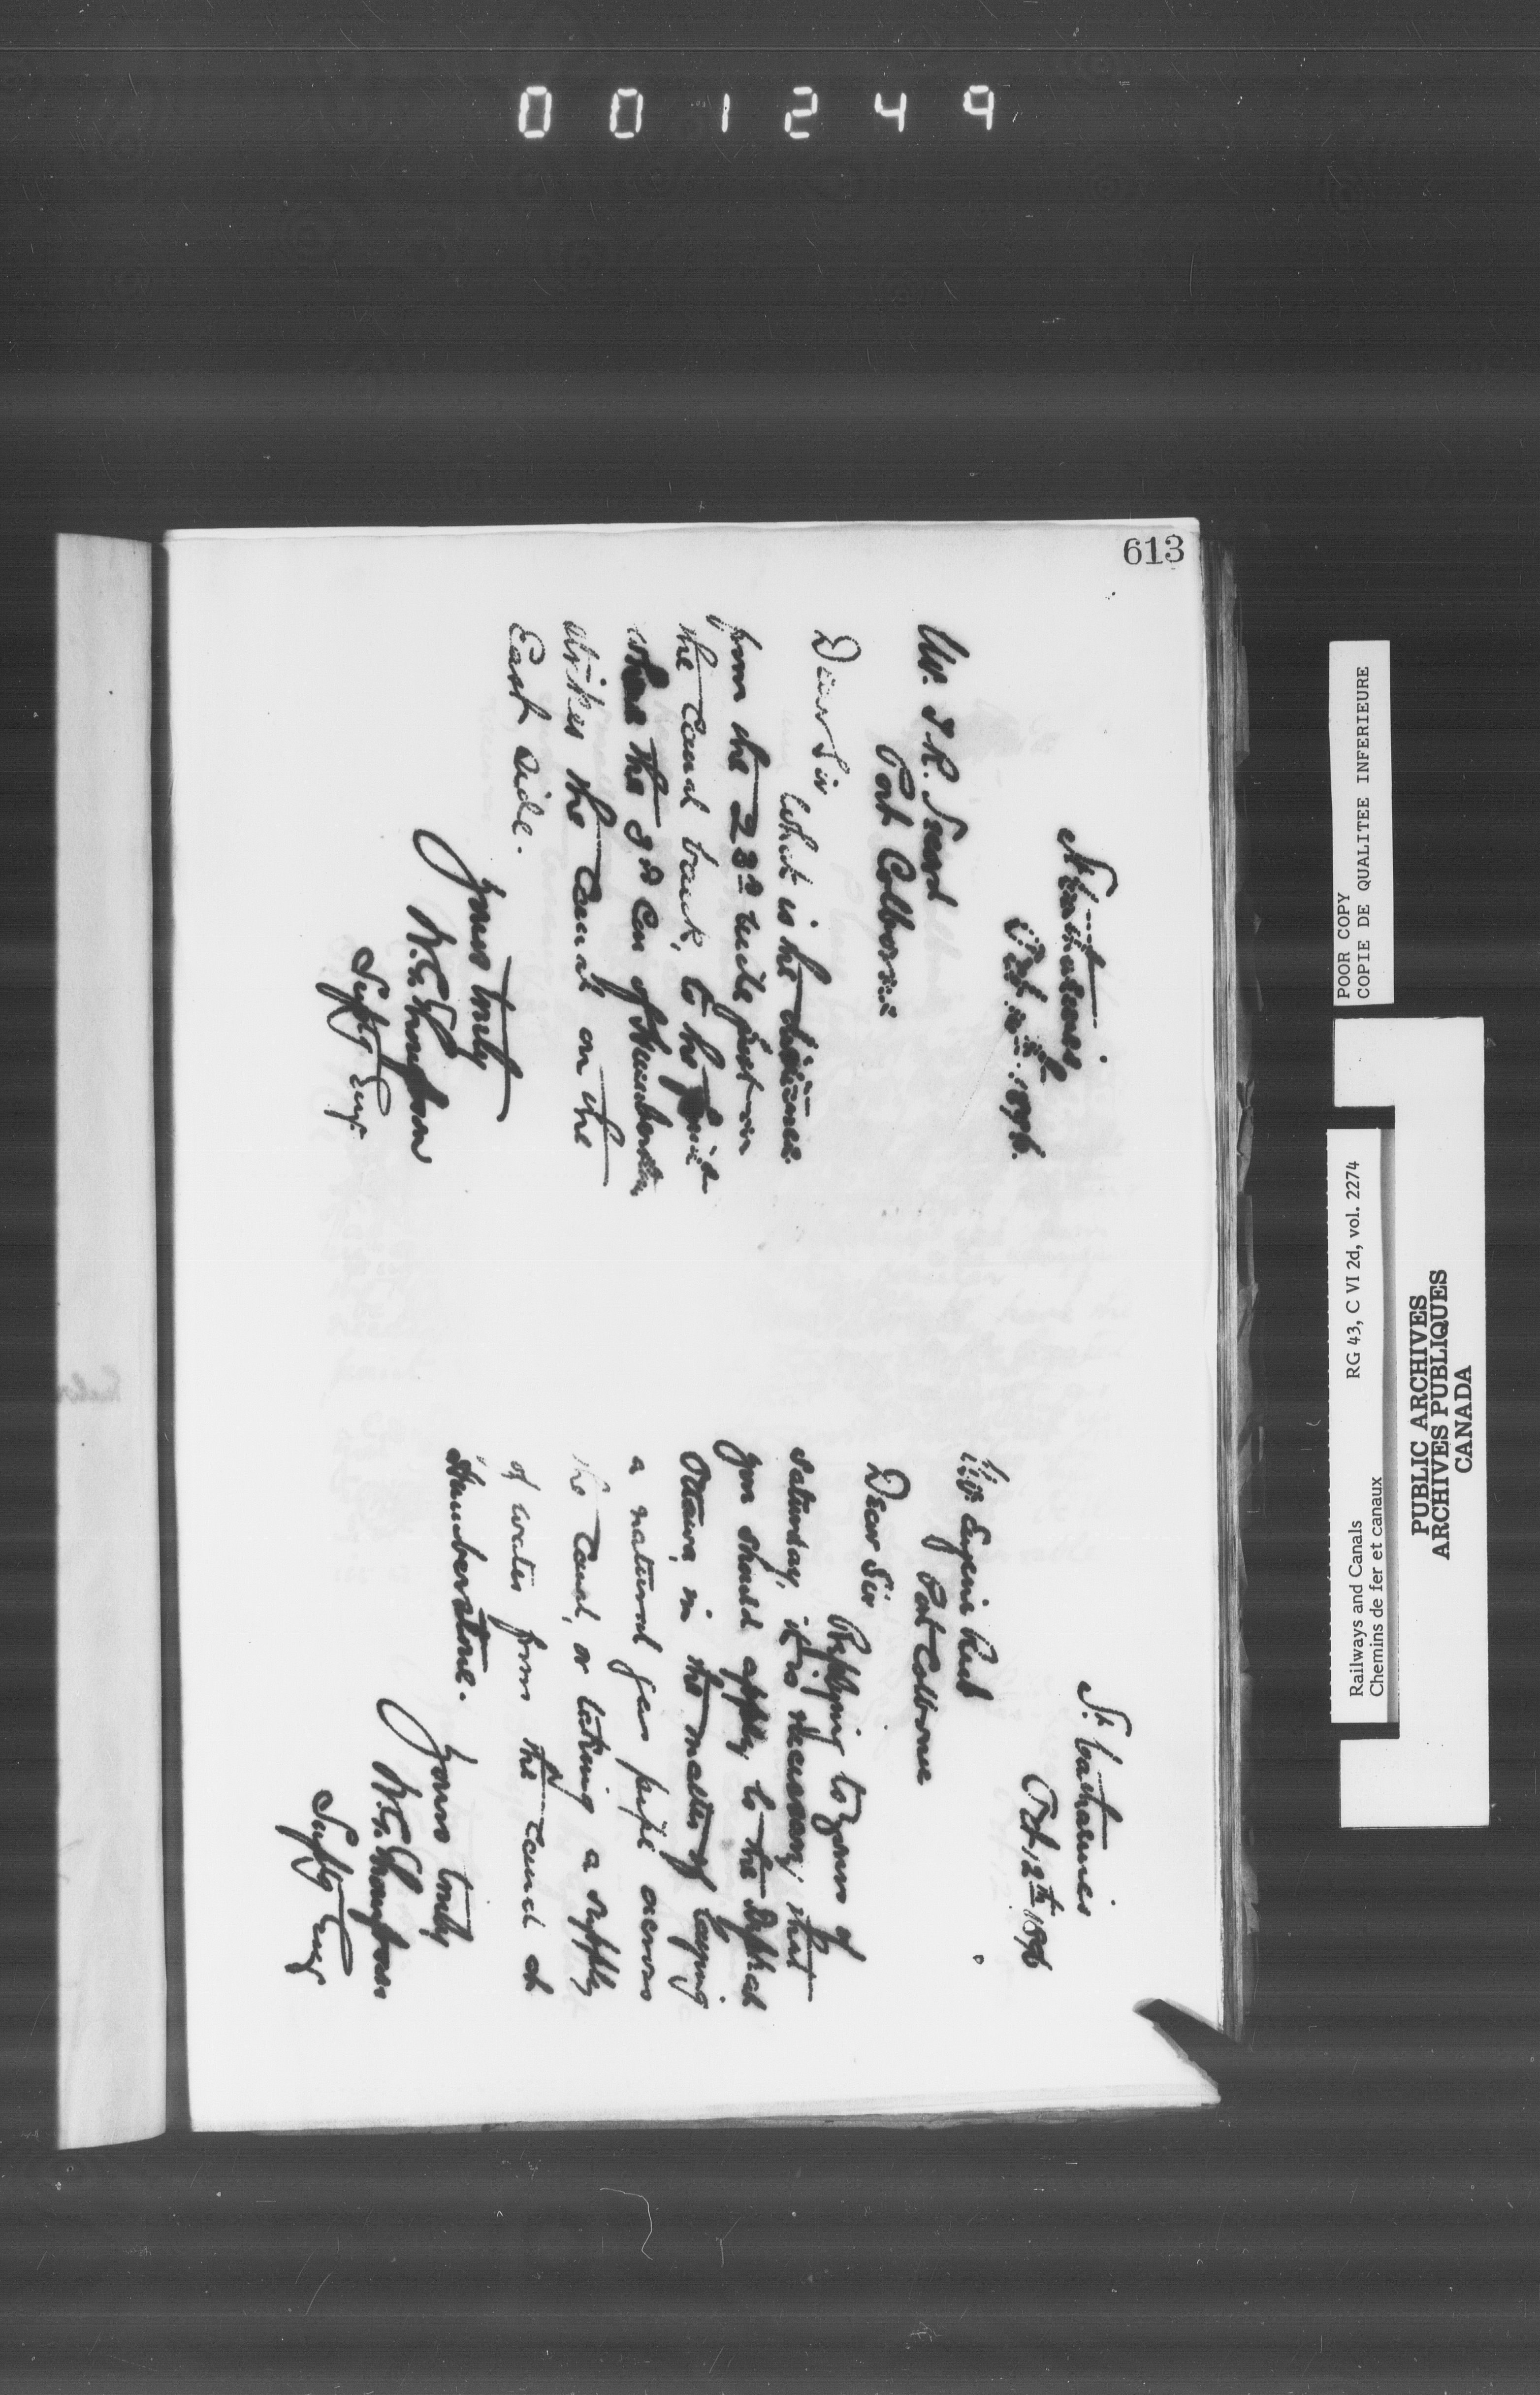 001249
613
St Catharines
Oct 12th 1896.
Mr. J. R.
Port Colborne
Dear Sir
What is the distance
from the 23rd mile post on
the Canal bank, to the point
where the 3rd Con of Humberstone
strikes the Canal on the
East side.
Yours truly
W. G. Thompson
Suptg Engr
St. Catharines
Oct 12th 1896
Mr. Eugene
Port Colborne
Dear Sir
Replying to yours of
Saturday, it is necessary that
you should apply to the Dept at
Ottawa, in the matter of laying
a natural gas pipe across
the Canal, or taking a supply
of water from the Canal at
Humberstone.
Yours truly
W. G. Thompson
Suptg Engr
POOR COPY
COPIE DE QUALITEE INFERIEURE
Railways and Canals RG 43, C VI 2d, vol. 2274
Chemins de fer et canaux
PUBLIC ARCHIVES
ARCHIVES PUBLIQUES
CANADA